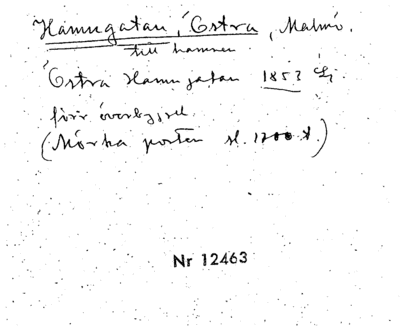 Hamngatan, Östra, Malmö.
till hamnen
Östra Hamngatan 1857
före överbyggd.
(Mörka porten sl. 1700 t.)
Nr 12463